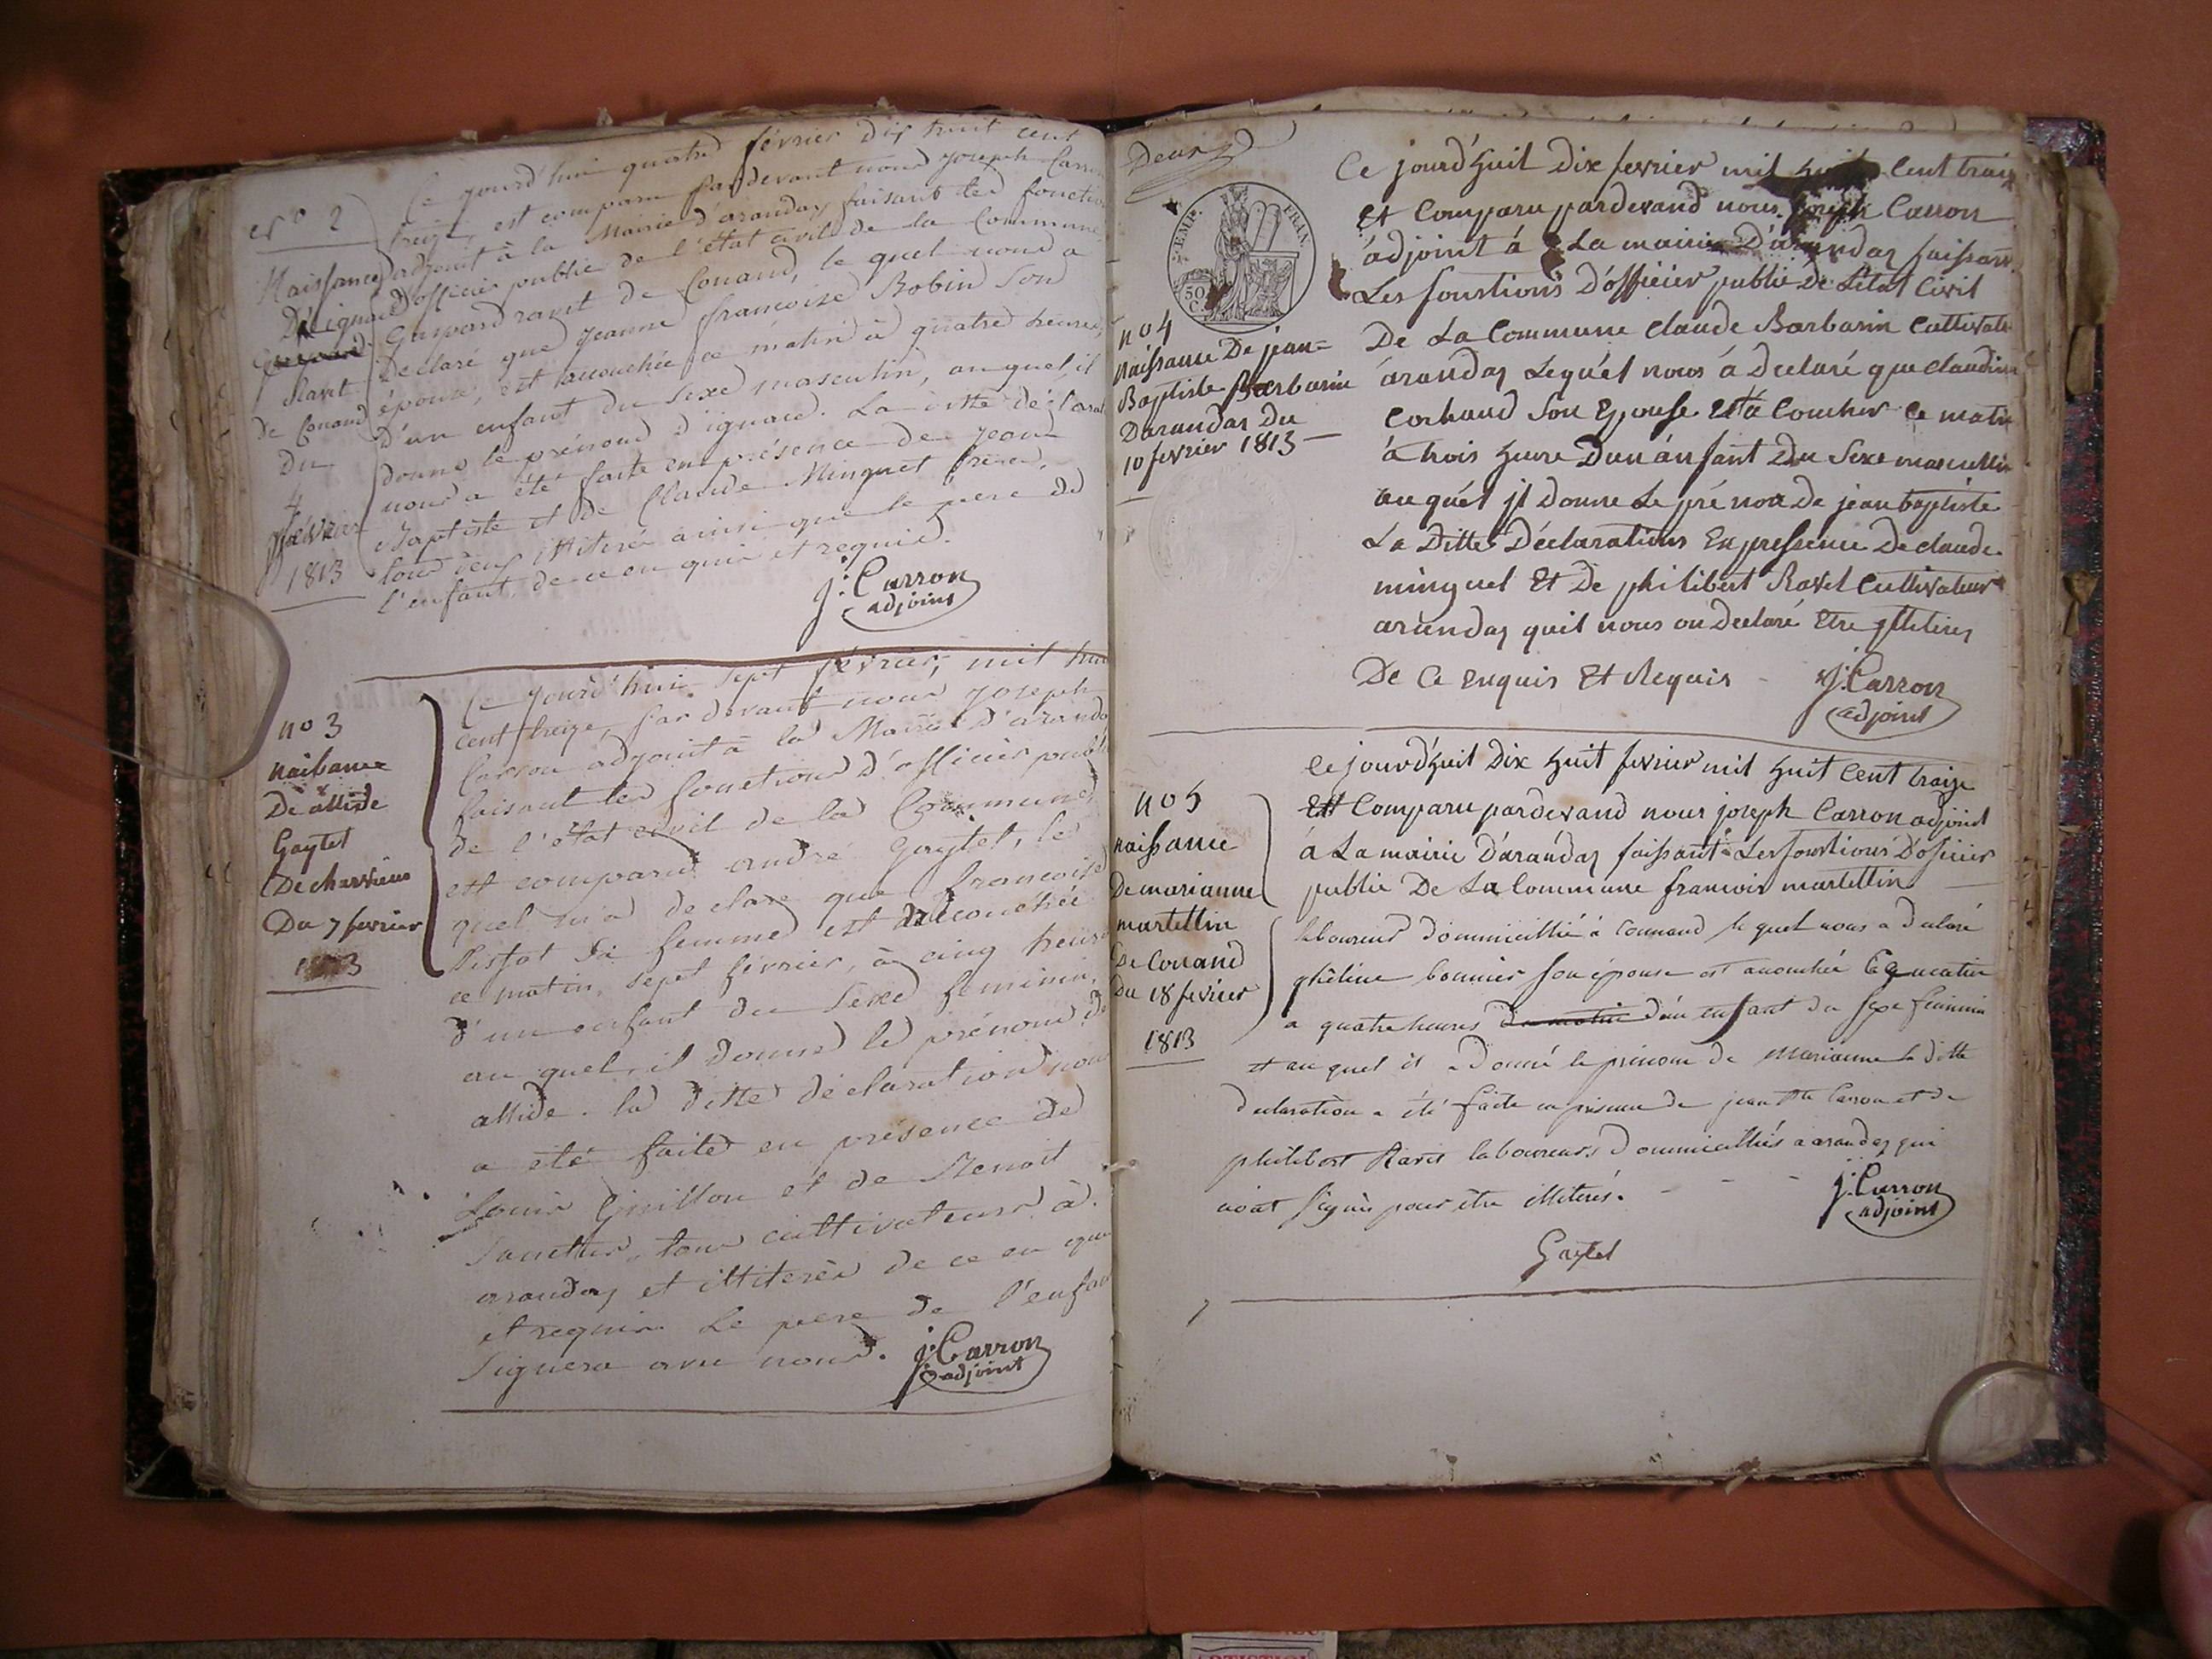 N° 2
Naissance
D'ignace
Gaspard
Ravet
de Conand
du
4
février
1813
Ce jourd'hui quatre février dix huit cent
treize, est comparu pardevant nous joseph Carron
adjoint à la Mairie d'arandas faisant les fonctions
d'officier public de l'état civil de la Commune
Gaspard ravet de Conand, le quel nous a
Declaré que jeanne francoise Robin son
épouse, est accouchée ce matin à quatre heures,
D'un enfant du sexe masculin, auquel, il
donne le prénom d'ignace. La ditte
nous a été faite en présence de jean
Baptiste et de Claude Minguet frères,
tous deux illiterés ainsi que le père de
l'enfant, de ce en quis et requis.
j: Carron
adjoint
no 3
naissance
De allide
Gaytet
De charvieux
Du 7 fevrier
1813
Ce jourd'hui sept février, mil huit
cent treize, par devant nous joseph
Carron adjoint à la Mairie D'arandas
faisant les fonctions d'officier public
de l'état civil de la Commune,
est comparu andré Gaytet, le
quel m'a declare que francoise
sa femme est accouchée
ce matin, sept février, à cinq heures
d'un enfant du sexe feminin,
au quel, il donne le prénom de
allide. la ditte déclaration nous
a été faite en présence de
Louis Guillon et de Benoit
tous cultivateurs à
arandas et illiterés de ce en quis
et requis. Le père de l'enfant
signera avec nous.
j: Carron
adjoint
Deux
EMP. FRAN.
50
C.
no 4
naissance De jean=
Baptiste Barbarin
Darandas Du
10 fevrier 1813
Ce jourd'huit Dix fevrier mil huit Cent traize
et Comparu pardevand nous joseph Carron
adjoint á La mairie D'arandas faissant
Les fonctions D'officier public De Létat Civil
De La Commune claude Barbarin Cultivateur
árandas Lequél nous á Declaré que claudine
Corbaud son Epouse Est á Coucher ce matin
á trois heure Dun ánfant Du Sexe masculin
au quél jl Donne Le pré nom De jean baptiste
La Ditte Déclarations En pressence De claude
minguet Et De philibert Ravet Cultivateur
arandas quil nous on Declaré Etre jlliteres
De Ce enquis Et Requis
J: Carron
adjoint
no 5
naissance
De marianne
martellin
De Conand
Du 18 fevrier
1813
Ce jourd'huit Dix huit fevrier mil huit Cent traize
Est Comparu pardevand nous joseph Carron adjoint
á La mairie D'arandas faissant Les fonctions D'oficier
public De La Commune francois martellin
laboureur domicillié à Connand le quel nous a declaré
phéline bonnier son épouse est acouchée Ce matin
a quatre heures du matin d'un enfant du sexe féminin
et au quel il a donné le prénom de Marianne la ditte
declaration a été faite en présence de jean Bte Carron et de
philibert Ravet laboureurs domicilliés a arandas qui
n'ont signés pour être illiterés.
j: Carron
adjoint
Gaytet